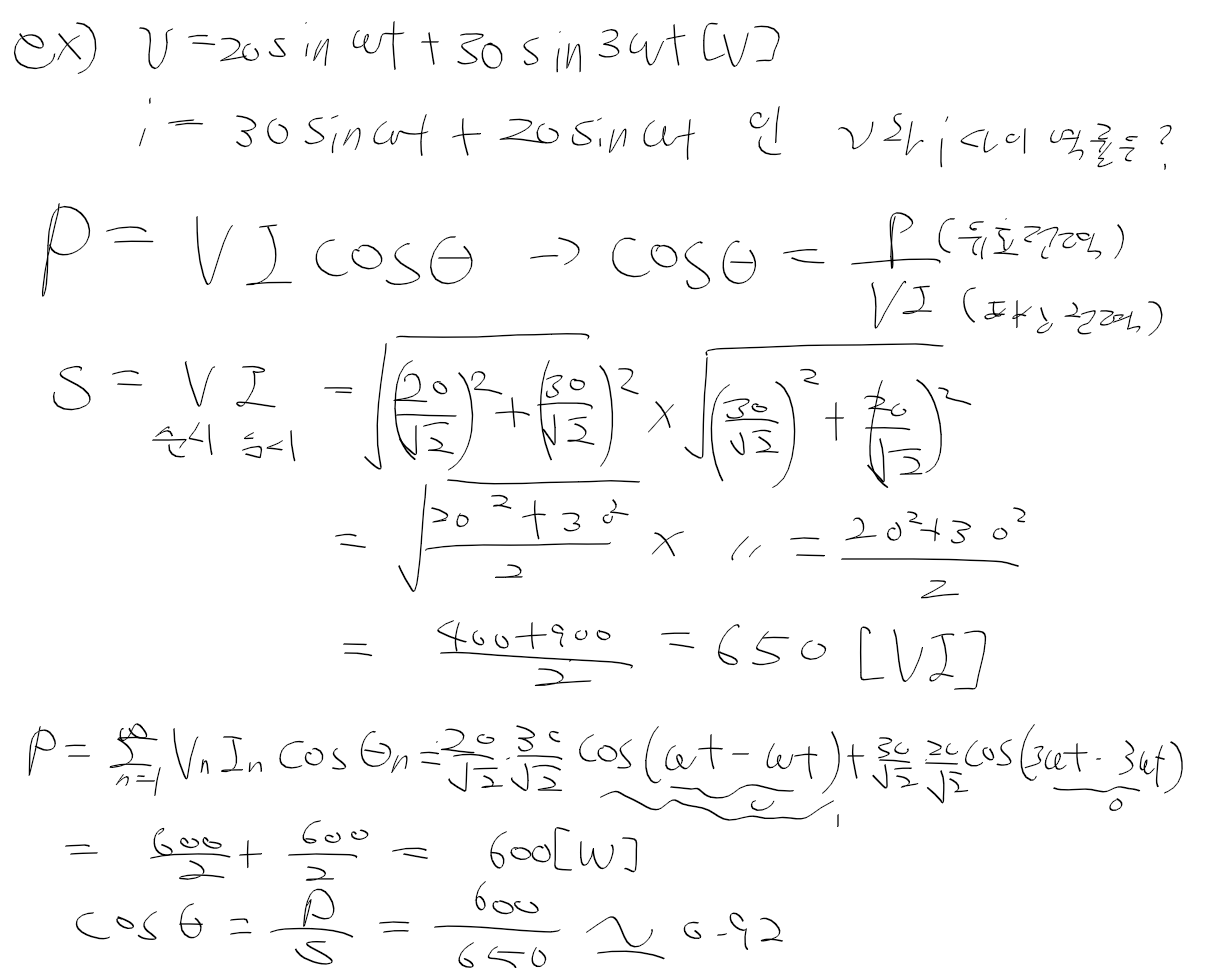 ex) v = 20 sin ωt + 30 sin 3ωt [V]
i = 30 sin ωt + 20 sin ωt 인 v와 i 사이 역률은?
P = VI cosθ → cosθ = P (유효전력) / VI (피상전력)
S = VI = √((20/√2)² + (30/√2)²) × √((30/√2)² + (20/√2)²)
= √((20² + 30²)/2) × 〃 = (20² + 30²)/2
= (400+900)/2 = 650 [VI]
P = ∑_{n=1}^{∞} Vₙ Iₙ cos θₙ = 20/√2 · 30/√2 cos(ωt - ωt) + 30/√2 20/√2 cos(3ωt - 3ωt)
0 1 0
= 600/2 + 600/2 = 600[W]
cos θ = P/S = 600/650 ≃ 0.92